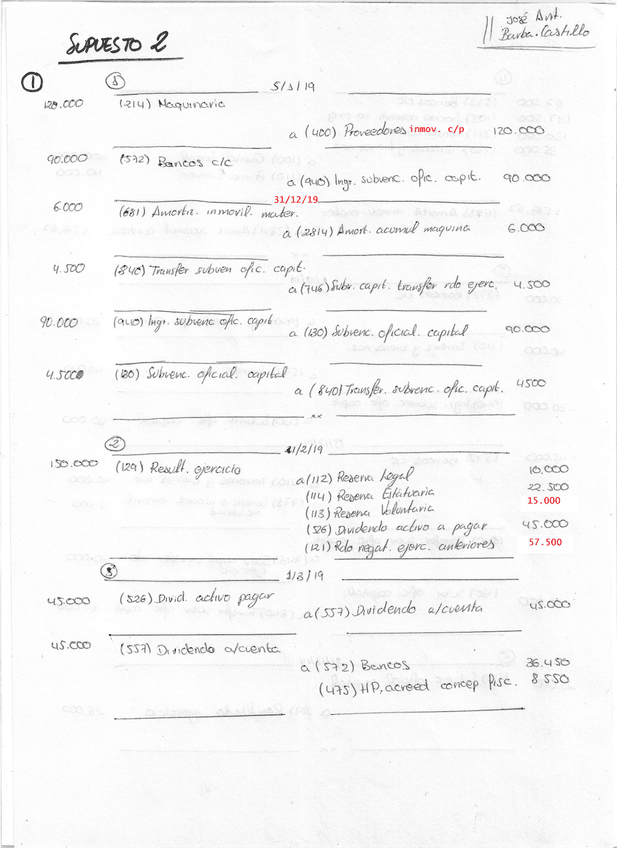 José Ant.
Barba. Castillo
SUPUESTO 2
1
1 5/1/19
120.000 (214) Maquinaria
a (400) Proveedores inmov. c/p 120.000
90.000 (572) Bancos c/c
a (940) Ingr. subvenc. ofic. capit. 90.000
31/12/19
6.000 (681) Amortiz. inmovil. mater.
a (2814) Amort. acomul maquina 6.000
4.500 (840) Transfer subven ofic. capit.
a (746) Subv. capit. transfer rdo ejerc. 4.500
90.000 (940) Ingr. subvenc. ofic. capit
a (130) Subvenc. oficial. capital 90.000
4.500 (130) Subvenc. oficial. capital
a (840) Transfer. subvenc. ofic. capit. 4500
xx
2 1/2/19
150.000 (129) Result. ejercicio
a (112) Reserva Legal 10.000
(114) Reserva Estatuaria 22.500
(113) Reserva Voluntaria 15.000
(526) Dividendo activo a pagar 45.000
(121) Rdo negat. ejerc. anteriores 57.500
3 1/3/19
45.000 (526) Divid. activo pagar
a (557) Dividendo a/cuenta 45.000
45.000 (557) Dividendo a/cuenta
a (572) Bancos 36.450
(475) HP, acreed concep fisc. 8.550